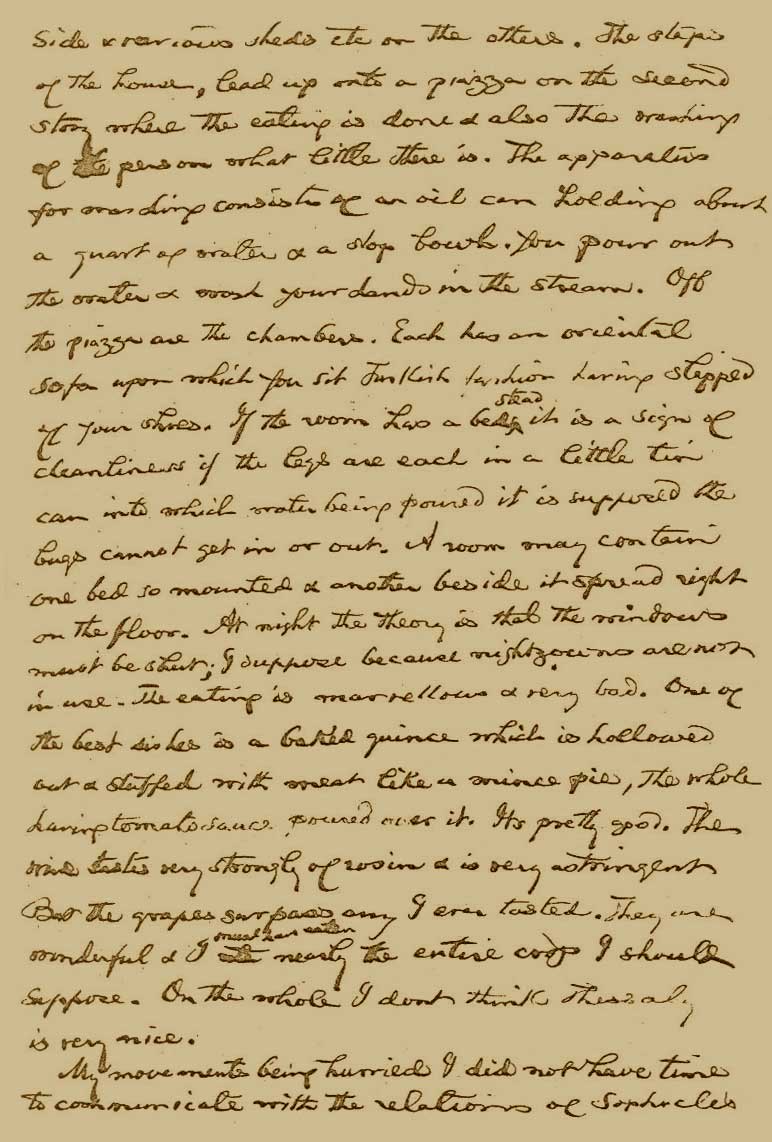 Side & various sheds etc on the others. The steps
of the house, lead up onto a piazza on the second
story where the eating is done & also the washing
of the person what little there is. The apparatus
for washing consists of an oil can holding about
a quart of water & a slop bowl. You pour out
the water & wash your hands in the stream. Off
the piazza are the chambers. Each has an oriental
sofa upon which you sit Turkish fashion having slipped
off your shoes. If the room has a bedstead it is a sign of
cleanliness if the legs are each in a little tin
can into which water being poured it is supposed the
bugs cannot get in or out. A room may contain
one bed so mounted & another beside it spread right
on the floor. At night the theory is that the windows
must be shut; I suppose because nightgowns are not
in use. The eating is marvellous & very bad. One of
the best dishes is a baked quince which is hollowed
out & stuffed with meat like a mince pie, the whole
having tomato sauce poured over it. Its pretty good. The
wine tastes very strongly of rosin & is very astringent
But the grapes surpass any I ever tasted. They are
wonderful & I must have eaten nearly the entire crop I should
suppose. On the whole I dont think Thessaly
is very nice.
My movements being hurried I did not have time
to communicate with the relations of Sophocles